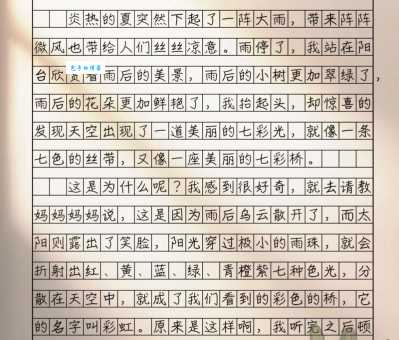 炎热的夏突然下起了一阵大雨，带来阵阵
微风也带给人们丝丝凉意。雨停了，我站在阳
台欣赏着雨后的美景，雨后的小树更加翠绿了，
雨后的花朵更加鲜艳了，我抬起头，却惊喜的
发现天空出现了一道美丽的七彩光，就像一条
七色的丝带，又像一座美丽的七彩桥。
这是为什么呢？我感到很好奇，就去请教
妈妈妈妈说，这是因为雨后乌云散开了，而太
阳则露出了笑脸，阳光穿过极小的雨珠，就会
折射出红、黄、蓝、绿、青橙紫七种色光，分
散在天空中，就成了我们看到的彩色的桥，它
的名字叫彩虹。原来是这样啊，我听完之后顿